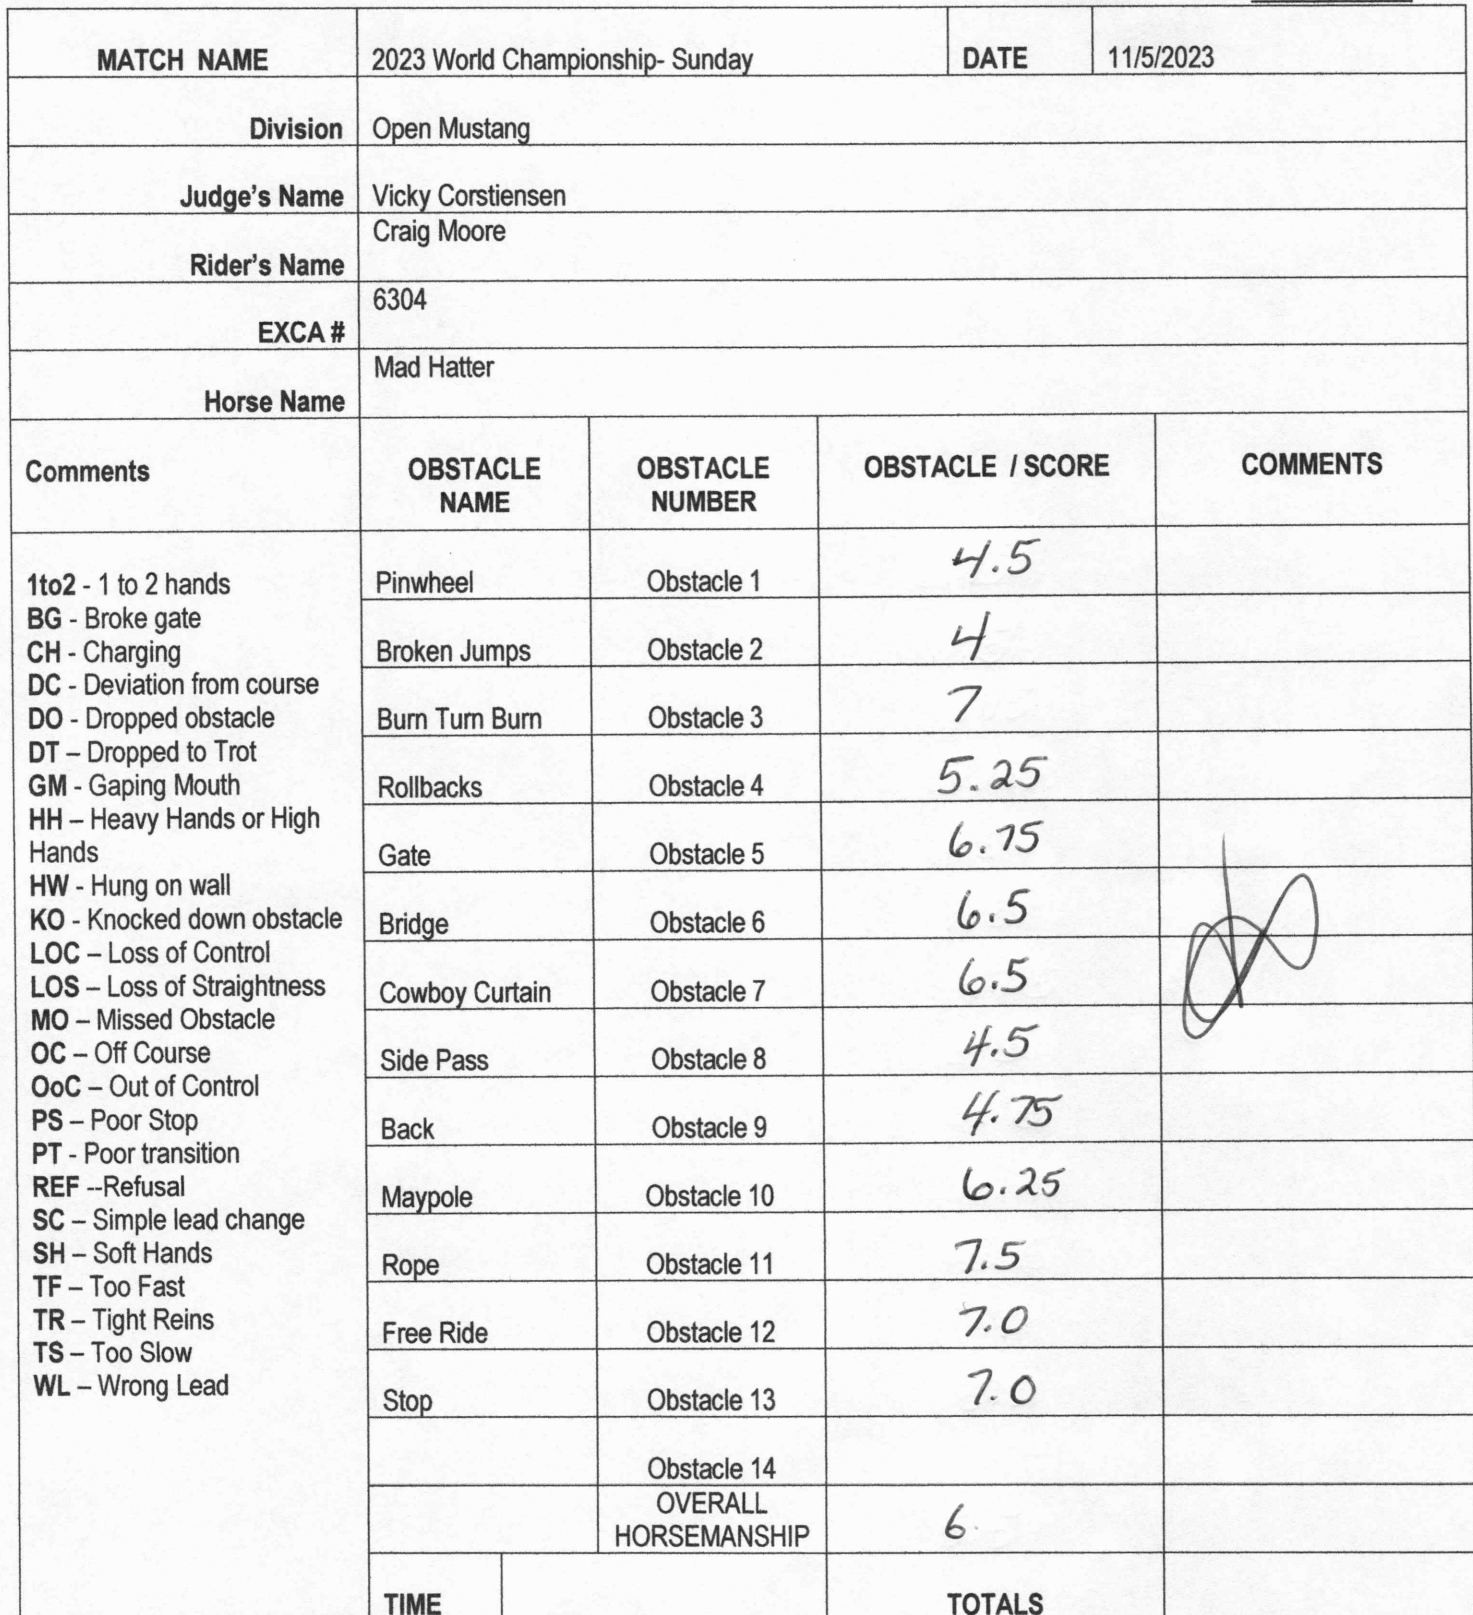 MATCH NAME 2023 World Championship- Sunday DATE 11/5/2023
Division Open Mustang
Judge's Name Vicky Corstiensen
Rider's Name Craig Moore
EXCA # 6304
Horse Name Mad Hatter
Comments OBSTACLE NAME OBSTACLE NUMBER OBSTACLE / SCORE COMMENTS
1to2 - 1 to 2 hands
BG - Broke gate
CH - Charging
DC - Deviation from course
DO - Dropped obstacle
DT – Dropped to Trot
GM - Gaping Mouth
HH – Heavy Hands or High
Hands
HW - Hung on wall
KO - Knocked down obstacle
LOC – Loss of Control
LOS – Loss of Straightness
MO – Missed Obstacle
OC – Off Course
OoC – Out of Control
PS – Poor Stop
PT - Poor transition
REF --Refusal
SC – Simple lead change
SH – Soft Hands
TF – Too Fast
TR – Tight Reins
TS – Too Slow
WL – Wrong Lead
Pinwheel Obstacle 1 4.5
Broken Jumps Obstacle 2 4
Burn Turn Burn Obstacle 3 7
Rollbacks Obstacle 4 5.25
Gate Obstacle 5 6.75
Bridge Obstacle 6 6.5
Cowboy Curtain Obstacle 7 6.5
Side Pass Obstacle 8 4.5
Back Obstacle 9 4.75
Maypole Obstacle 10 6.25
Rope Obstacle 11 7.5
Free Ride Obstacle 12 7.0
Stop Obstacle 13 7.0
Obstacle 14
OVERALL
HORSEMANSHIP 6
TIME TOTALS